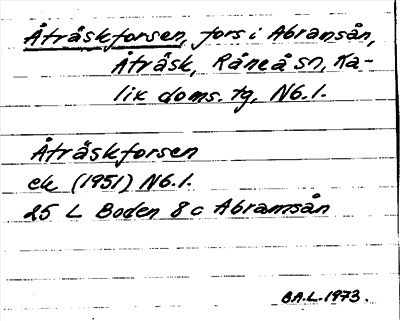 Åträskforsen, fors i Abramsån,
Åträsk, Råneå sn, Ka-
lix doms. tg, Nb.l.
Åträskforsen
ek (1951) Nb.l.
25 L Boden 8 c Abramsån
B.A.L. 1973.